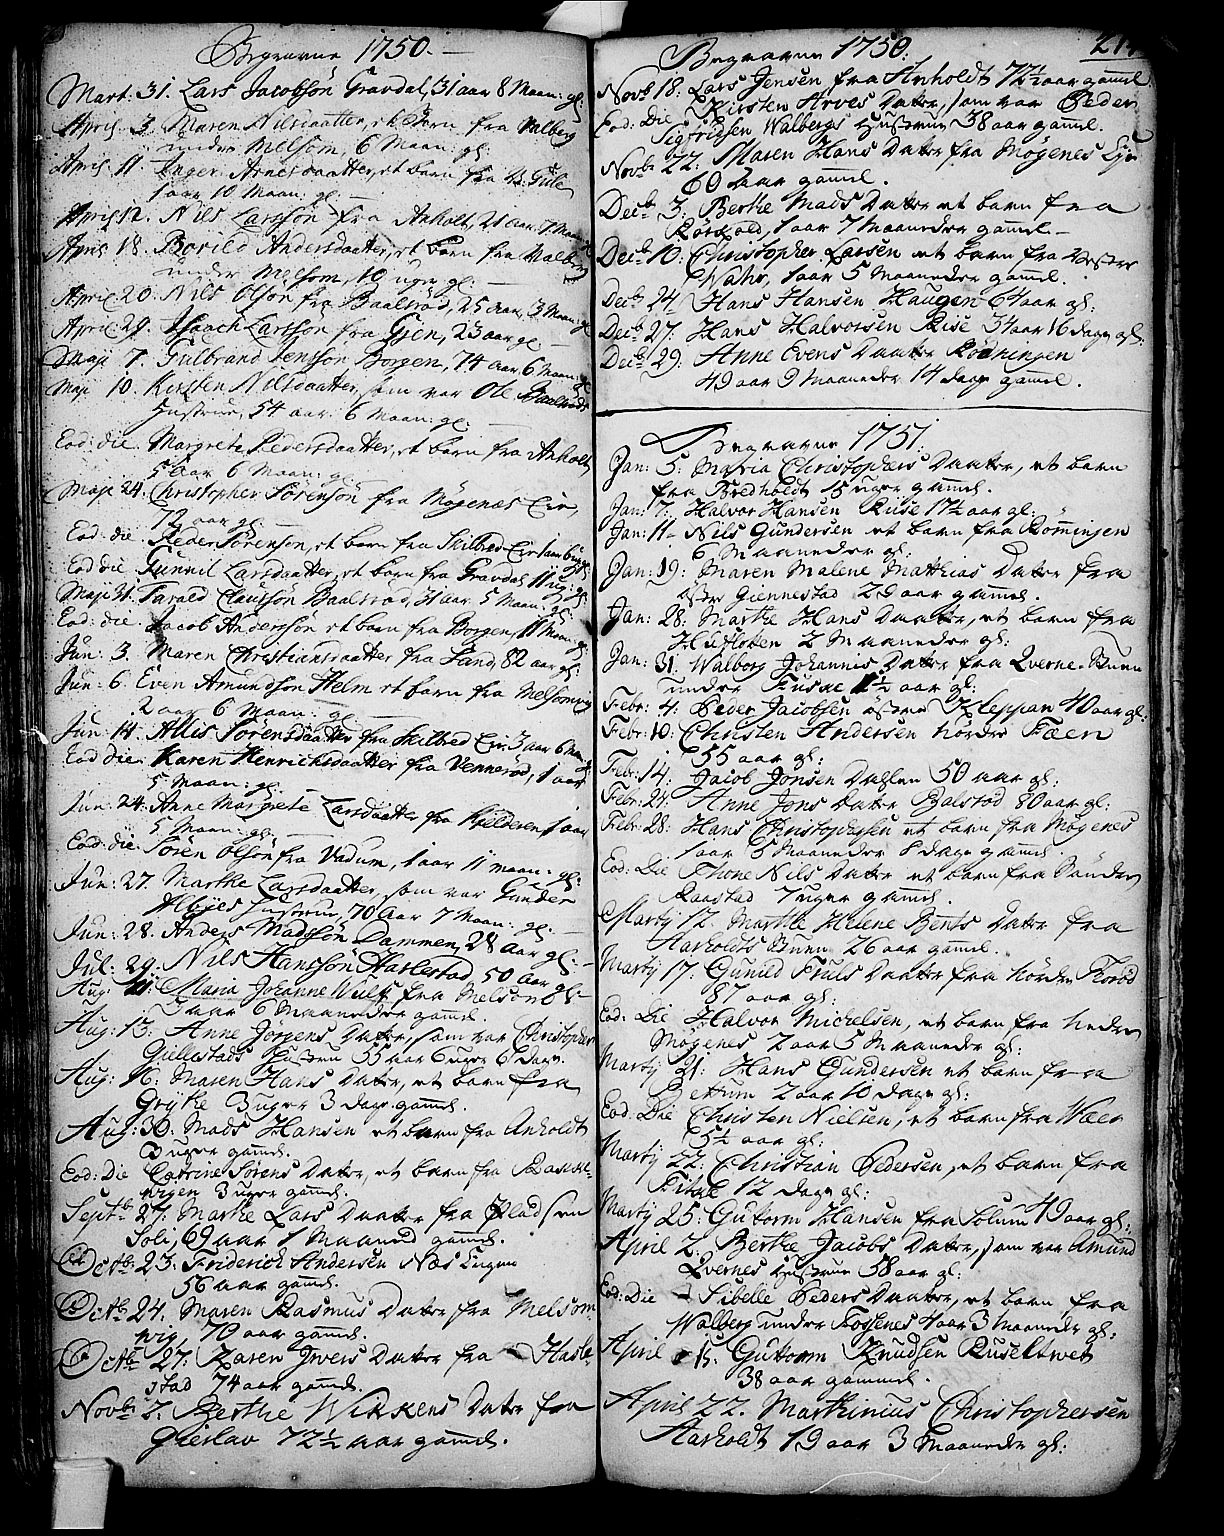 Begravne 1750.
Mart: 31. Lars Jacobsön Gravdal, 31 aar 8 Maan: gl:
April 3. Maren Nilsdaatter, et Barn fra Valberg
under Melsom 6 Maan: gl:
April 11. Inger Arnesdaatter, et barn fra
1 aar 10 Maan: gl:
April 12. Nils Larssön fra Anholt, 21 aar 7 Maan:
April 18. Borild Andersdaatter, et barn fra Valberg
under Melsom, 10 uger gl:
April 20. Nils Olsön fra Baalsrød, 25 aar, 3 Maan: gl
April 29. Isaach Larssön fra Gjen, 23 aar gl:
Maji 7. Gulbrand Jenssön Borgen, 74 aar 6 Maan: gl
Maji 10. Kirsten Nilsdaatter, som var Ole Baalsrøds
Hustrue, 54 aar 6 Maan: gl:
Eod: die. Margrete Pedersdaatter, et barn fra Anholt
5 aar 6 Maan: gl:
Maji 24. Christopher Sörensön fra Mögenæs Eie,
79 aar gl:
Eod: die Peder Sörenson, et barn fra Skilbred Eie 1 aar 6 uger
Eod die Gunnil Larsdaatter, et barn fra Gravdal 11 ug: gl:
Maji 31. Tarald Claussön Baalsrød, 31 aar 5 Maan: gl:
Eod: die: Jacob Anderssön et barn fra Borgen, 11 Maan: gl:
Jun: 3. Maren Christiansdaatter fra Sand, 82 aar gl:
Jun: 6. Even Amundsön Helm et barn fra Melsomvig
2 aar 6 Maan: gl:
Jun: 14. Allis Sörensdaatter fra Skilbred Eie 3 aar 6 maan:
Eod die: Karen Henrichsdaatter fra Vennerød, 1 aar
5 Maan: gl:
Jun: 24. Anne Margrete Larsdaatter fra Kjelderen, 1 aar
5 Maan: gl:
Eod: die: Sören Olsön fra Vadum, 1 aar 11 maan: gl:
Jun: 27. Marthe Larsdaatter, som var Gunder
Albyes Hustrue, 70 aar 7 Maan: gl:
Jun: 28. Anders Madssön Dammen, 28 aar gl:
Jul: 29. Nils Hanssön Haslestad 50 aar gl:
Aug: 11: Maria Johanne Wulf fra Melsom
3 aar 6 Maaneder gammel.
Aug: 15: Anne Jörgens Dater, som var Christopher
Gillestads Hustrue 55 aar 6 uger 6 dage.
Aug: 16: Maren Hans Dater, et barn fra
Gryte 3 uger 3 dage gammel.
Aug: 30: Mads Hansen et barn fra Anholdt
3 uger gammel.
Eod: Die Catrine Sörens Dater, et barn fra Bakke
wigen 3 uger gammel.
Septbr 27: Marthe Lars Daater fra Pladsen
Soli, 69 aar 1 Maaned gammel.
Octbr 23. Friderich Andersen Næs Eugen
56 aar gammel.
Octbr 24. Maren Rasmus Dater fra Melsom
wig, 70 aar gammel.
Octbr 27: Karen Iwers Dater fra Hasle
stad 74 aar gammel.
Novbr 2. Berthe Wikkens Dater fra
Gierlav 72½ aar gammel.
Begravne 1750. 214
Novbr 18: Lars Jensen fra Anholdt 72½ aar gammel
Eod: Die Kirsten Arves Dater, som var Peder
Sigfridsen Walbergs Hustrue 38 aar gammel.
Novbr 22: Maren Hans Dater fra Mögenes Eje
60 Aar gammel.
Decbr 3: Berthe Mads Dater et barn fra
Rörkold, 1 aar 7 Maaneder gammel.
Decbr 10: Christopher Larsen et barn fra Vestre
Wahr, 1 aar 5 Maaneder gammel.
Decbr 24. Hans Hansen Haugen 64 aar gl:
Decbr 27: Hans Halvorsen Rise 34 aar 16 dage gl:
Decbr 29: Anne Evens Daater Rödningen
49 aar 9 Maaneder 14 dage gammel.
Begravne 1751.
Jan: 5: Maria Christophers Daater, et barn
fra Bredholdt 15 uger gammel.
Jan: 7: Halvor Hansen Riise 17½ aar gl:
Jan: 11. Nils Gundersen et barn fra Romingen
6 Maaneder gl:
Jan: 19: Maren Malene Mathias Dater fra
öster Giennestad 29 aar gammel.
Jan: 28: Marthe Hans Daater, et barn fra
Hufloten 2 Maaneder gl:
Jan: 31. Walborg Johannes Dater fra Qverne-Tuen
under Fuske 1½ aar gl:
Febr: 4. Peder Jacobsen östre Kleppan 40 aar gl:
Febr: 10: Christen Andersen nordre Fæen
55 aar gl:
Febr: 14: Jacob Jonsen Dahlen 50 aar gl:
Febr: 21: Anne Jons Dater Balstad 80 aar gl:
Febr: 28: Hans Christophersen et barn fra Mögenes
1 aar 5 Maaneder 8 dage gammel.
Eod: Die Thone Nils Dater et barn fra Sönder
Raastad 7 uger gammel.
Martij 12. Marthe Helene Bents Dater fra
Aasholdts Tuen 26 aar gammel.
Martij 17: Gunild Truls Daater fra nordre Thorød
87 aar gl:
Eod: Die Halvor Michelsen, et barn fra neder
Mögenes 2 aar 5 Maaneder gl:
Martij 21: Hans Gundersen et barn fra
Bettum 2 aar 10 dage gl:
Eod: Die Christen Nielsen, et barn fra Wæer
5½ aar gl:
Martij 22: Christian Pedersen, et barn fra
Fitje 12 dage gl:
Martij 25: Gutorm Hansen fra Solum 49 aar gl:
April 2. Berthe Jacobs Dater, som var Amund
Qvernes Hustrue 58 aar gl:
Eod: Die Sibelle Peders Daater, et barn fra
Walberg under Fossenes 4 aar 3 Maaneder gl:
April 15. Guttorm Knudsen Ruseltvet
38 aar gammel.
April 22. Marthinius Christophersen
Aasholdt 19 aar 3 Maaneder gl: